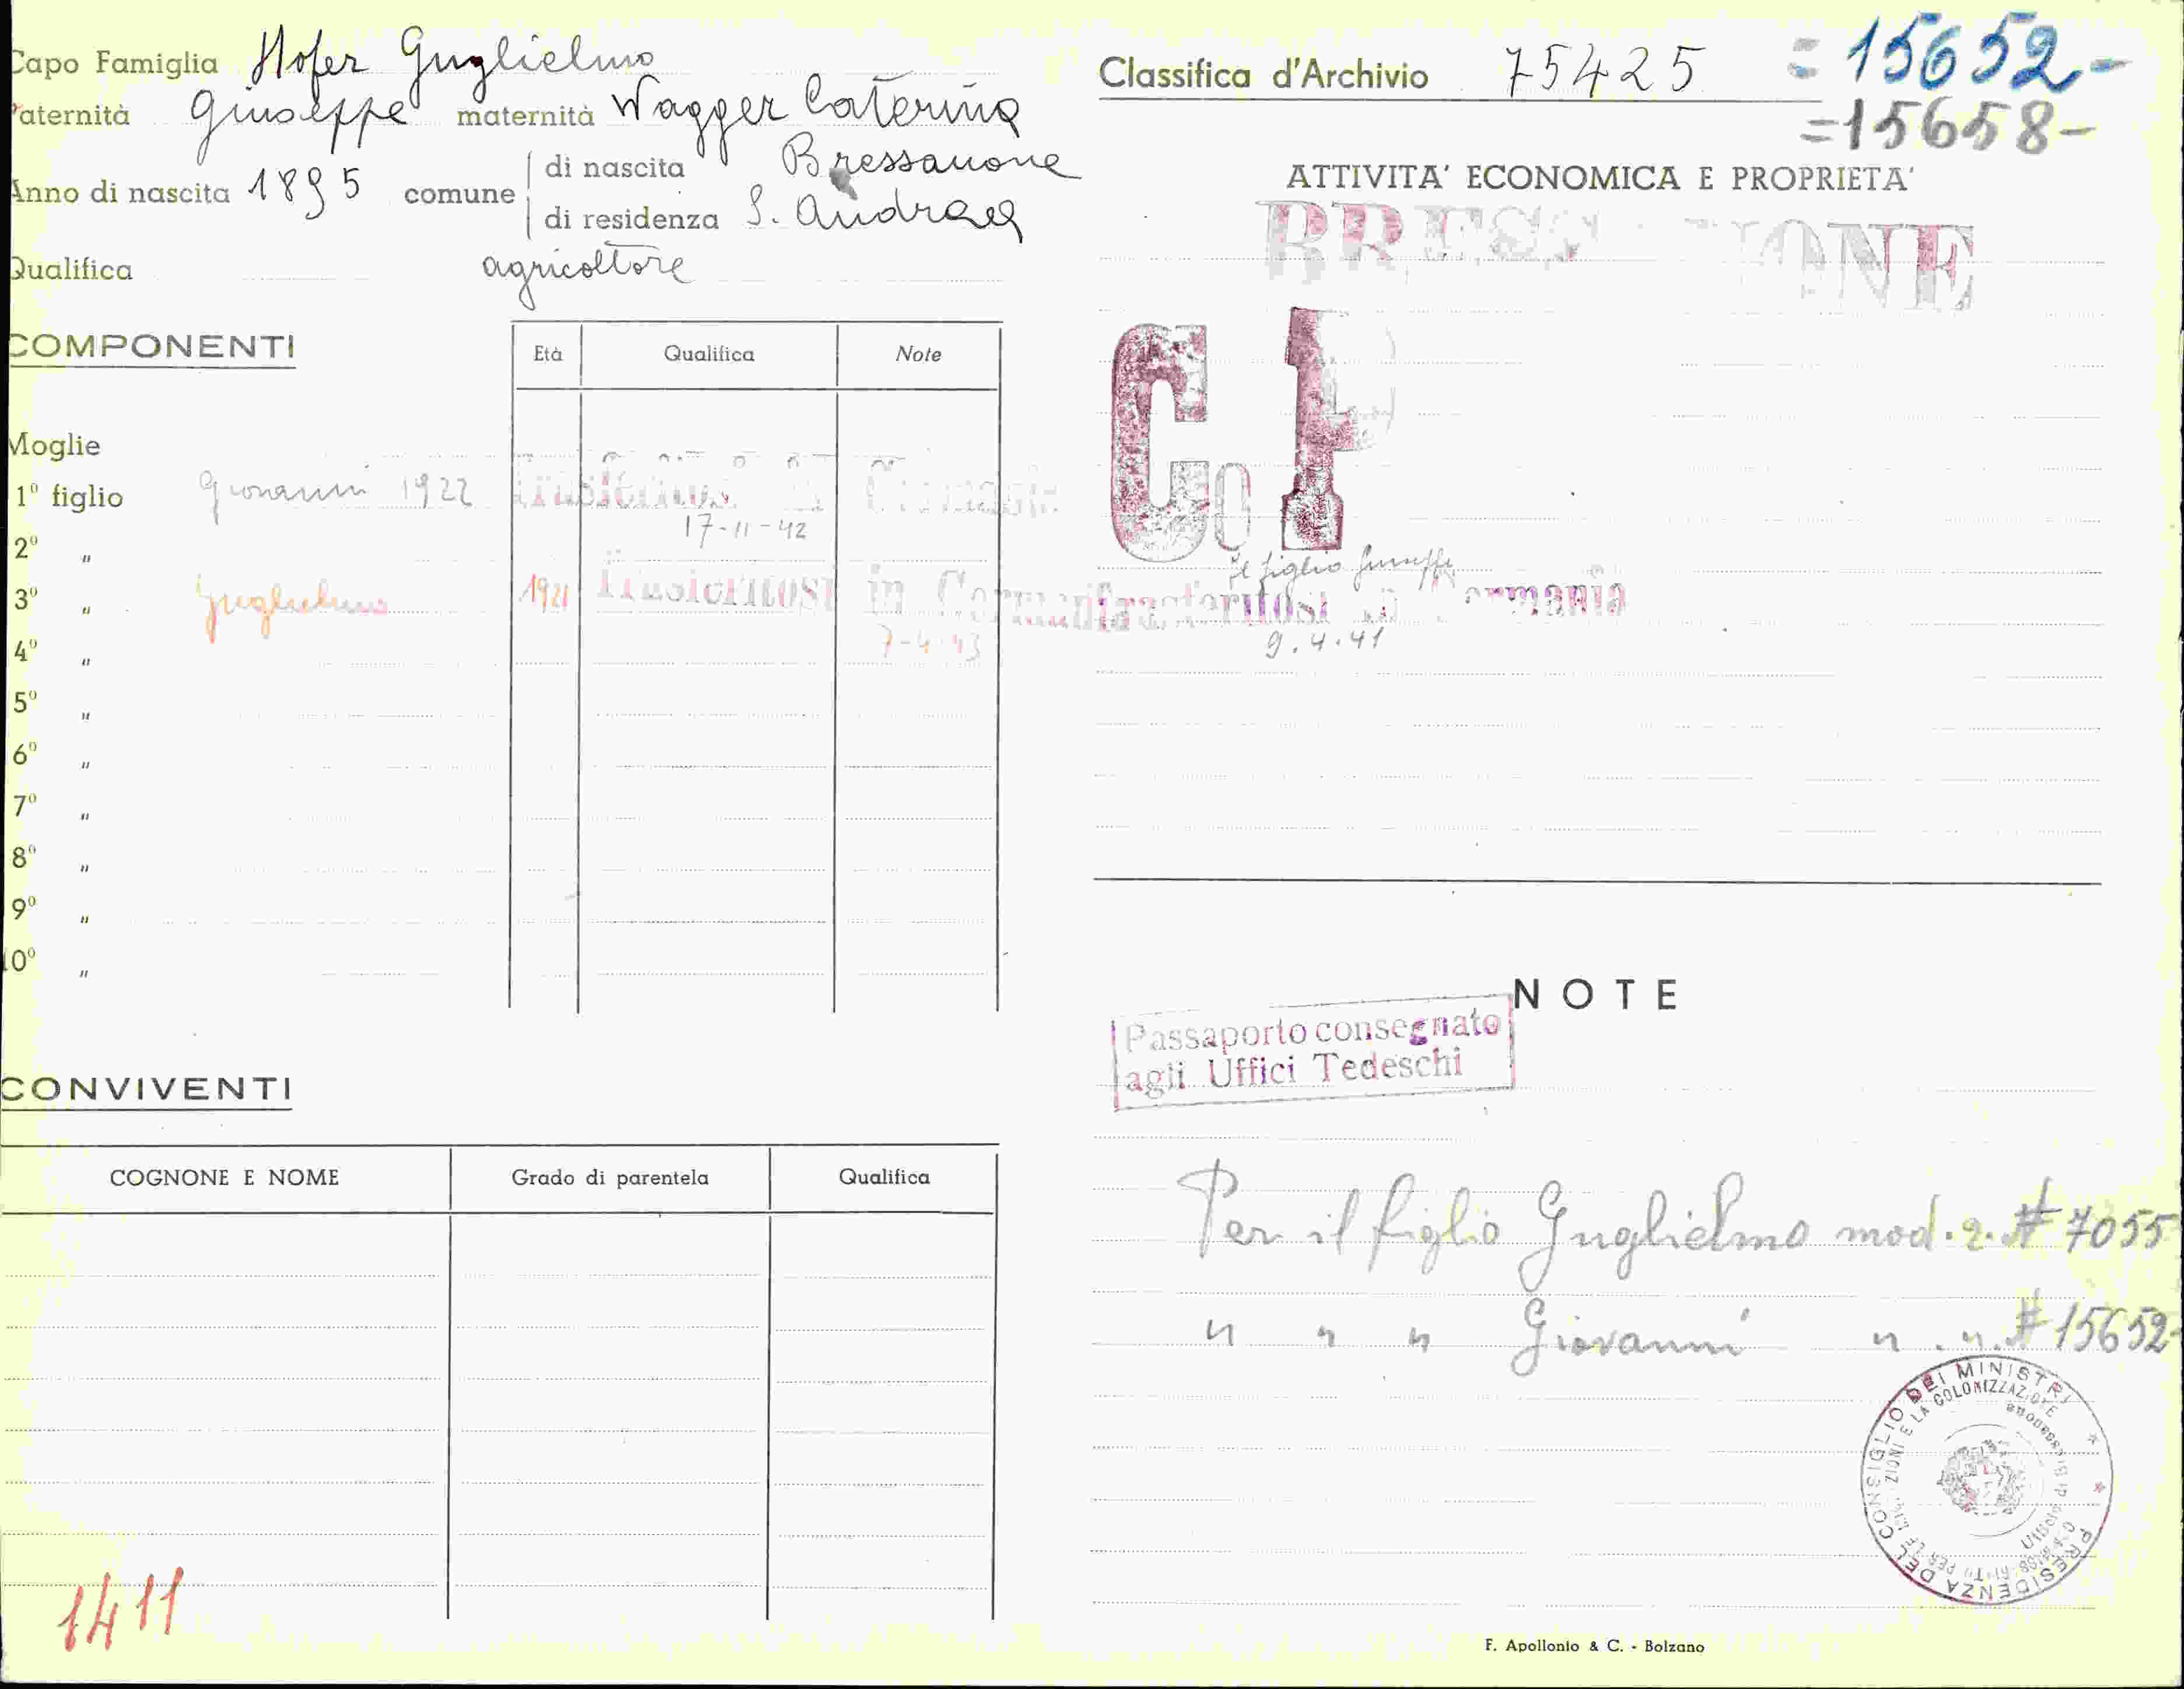 Capo Famiglia Hofer Guglielmo
Paternità Giuseppe maternità Wagger Caterina
Anno di nascita 1895 comune di nascita Bressanone
di residenza S. Andrea
Qualifica agricoltore
COMPONENTI
Età Qualifica Note
Moglie
1º figlio Giovanni 1922 Trasferitosi in Germania
17-11-42
2º "
3º " Guglielmo 1921 Trasferitosi in Germania
7-4-43
4º "
5º "
6º "
7º "
8º "
9º "
10º "
CONVIVENTI
COGNONE E NOME Grado di parentela Qualifica
1411
Classifica d'Archivio 75425 =15652-
=15658-
ATTIVITA' ECONOMICA E PROPRIETA'
BRESSANONE
il figlio Giuseppe
Trasferitosi in Germania
9.4.41
NOTE
Passaporto consegnato
agli Uffici Tedeschi
Per il figlio Guglielmo mod. 2. # 7055
" " " Giovanni " . ". # 15652-
PRESIDENZA DEL CONSIGLIO DEI MINISTRI
ZIONI E LA COLONIZZAZIONE
Ufficio di Bressanone
F. Apollonio & C. - Bolzano